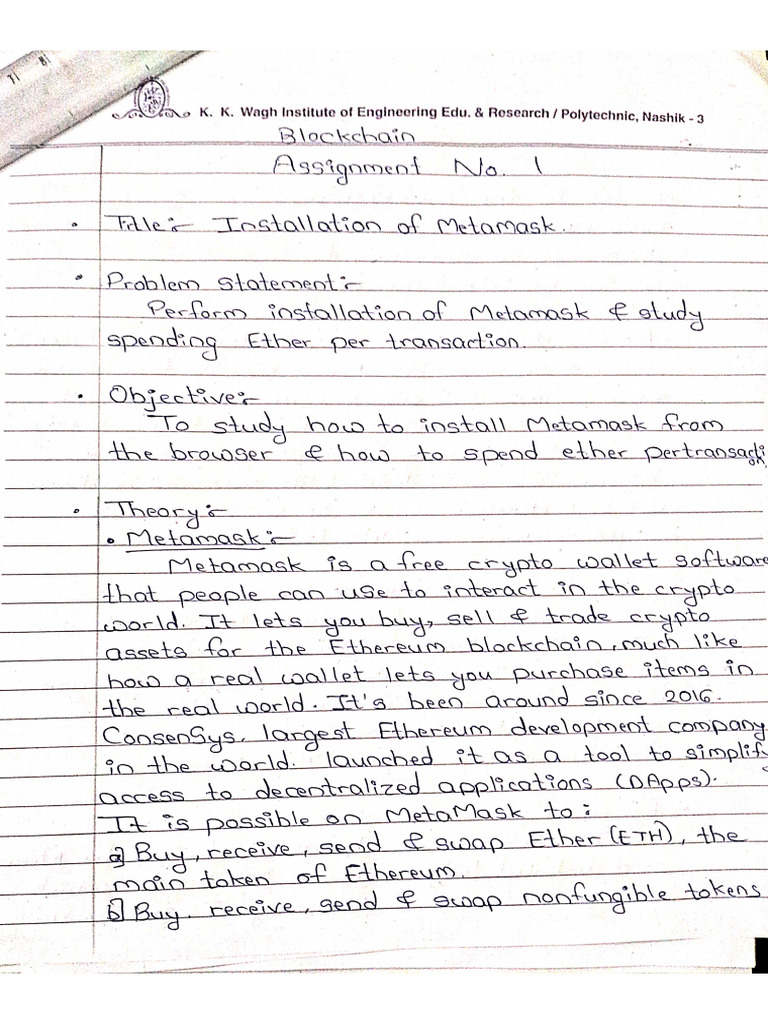 K. K. Wagh Institute of Engineering Edu. & Research / Polytechnic, Nashik - 3
Blockchain
Assignment No. 1
• Title:- Installation of Metamask.
• Problem statement:-
Perform installation of Metamask & study
spending Ether per transaction.
• Objective:-
To study how to install Metamask from
the browser & how to spend ether pertransaction
• Theory:-
• Metamask:-
Metamask is a free crypto wallet software
that people can use to interact in the crypto
world. It lets you buy, sell & trade crypto
assets for the Ethereum blockchain, much like
how a real wallet lets you purchase items in
the real world. It's been around since 2016.
ConsenSys, largest Ethereum development company
in the world. launched it as a tool to simplify
access to decentralized applications (DApps).
It is possible on MetaMask to:
a] Buy, receive, send & swap Ether (ETH), the
main token of Ethereum.
b] Buy, receive, send & swap nonfungible tokens